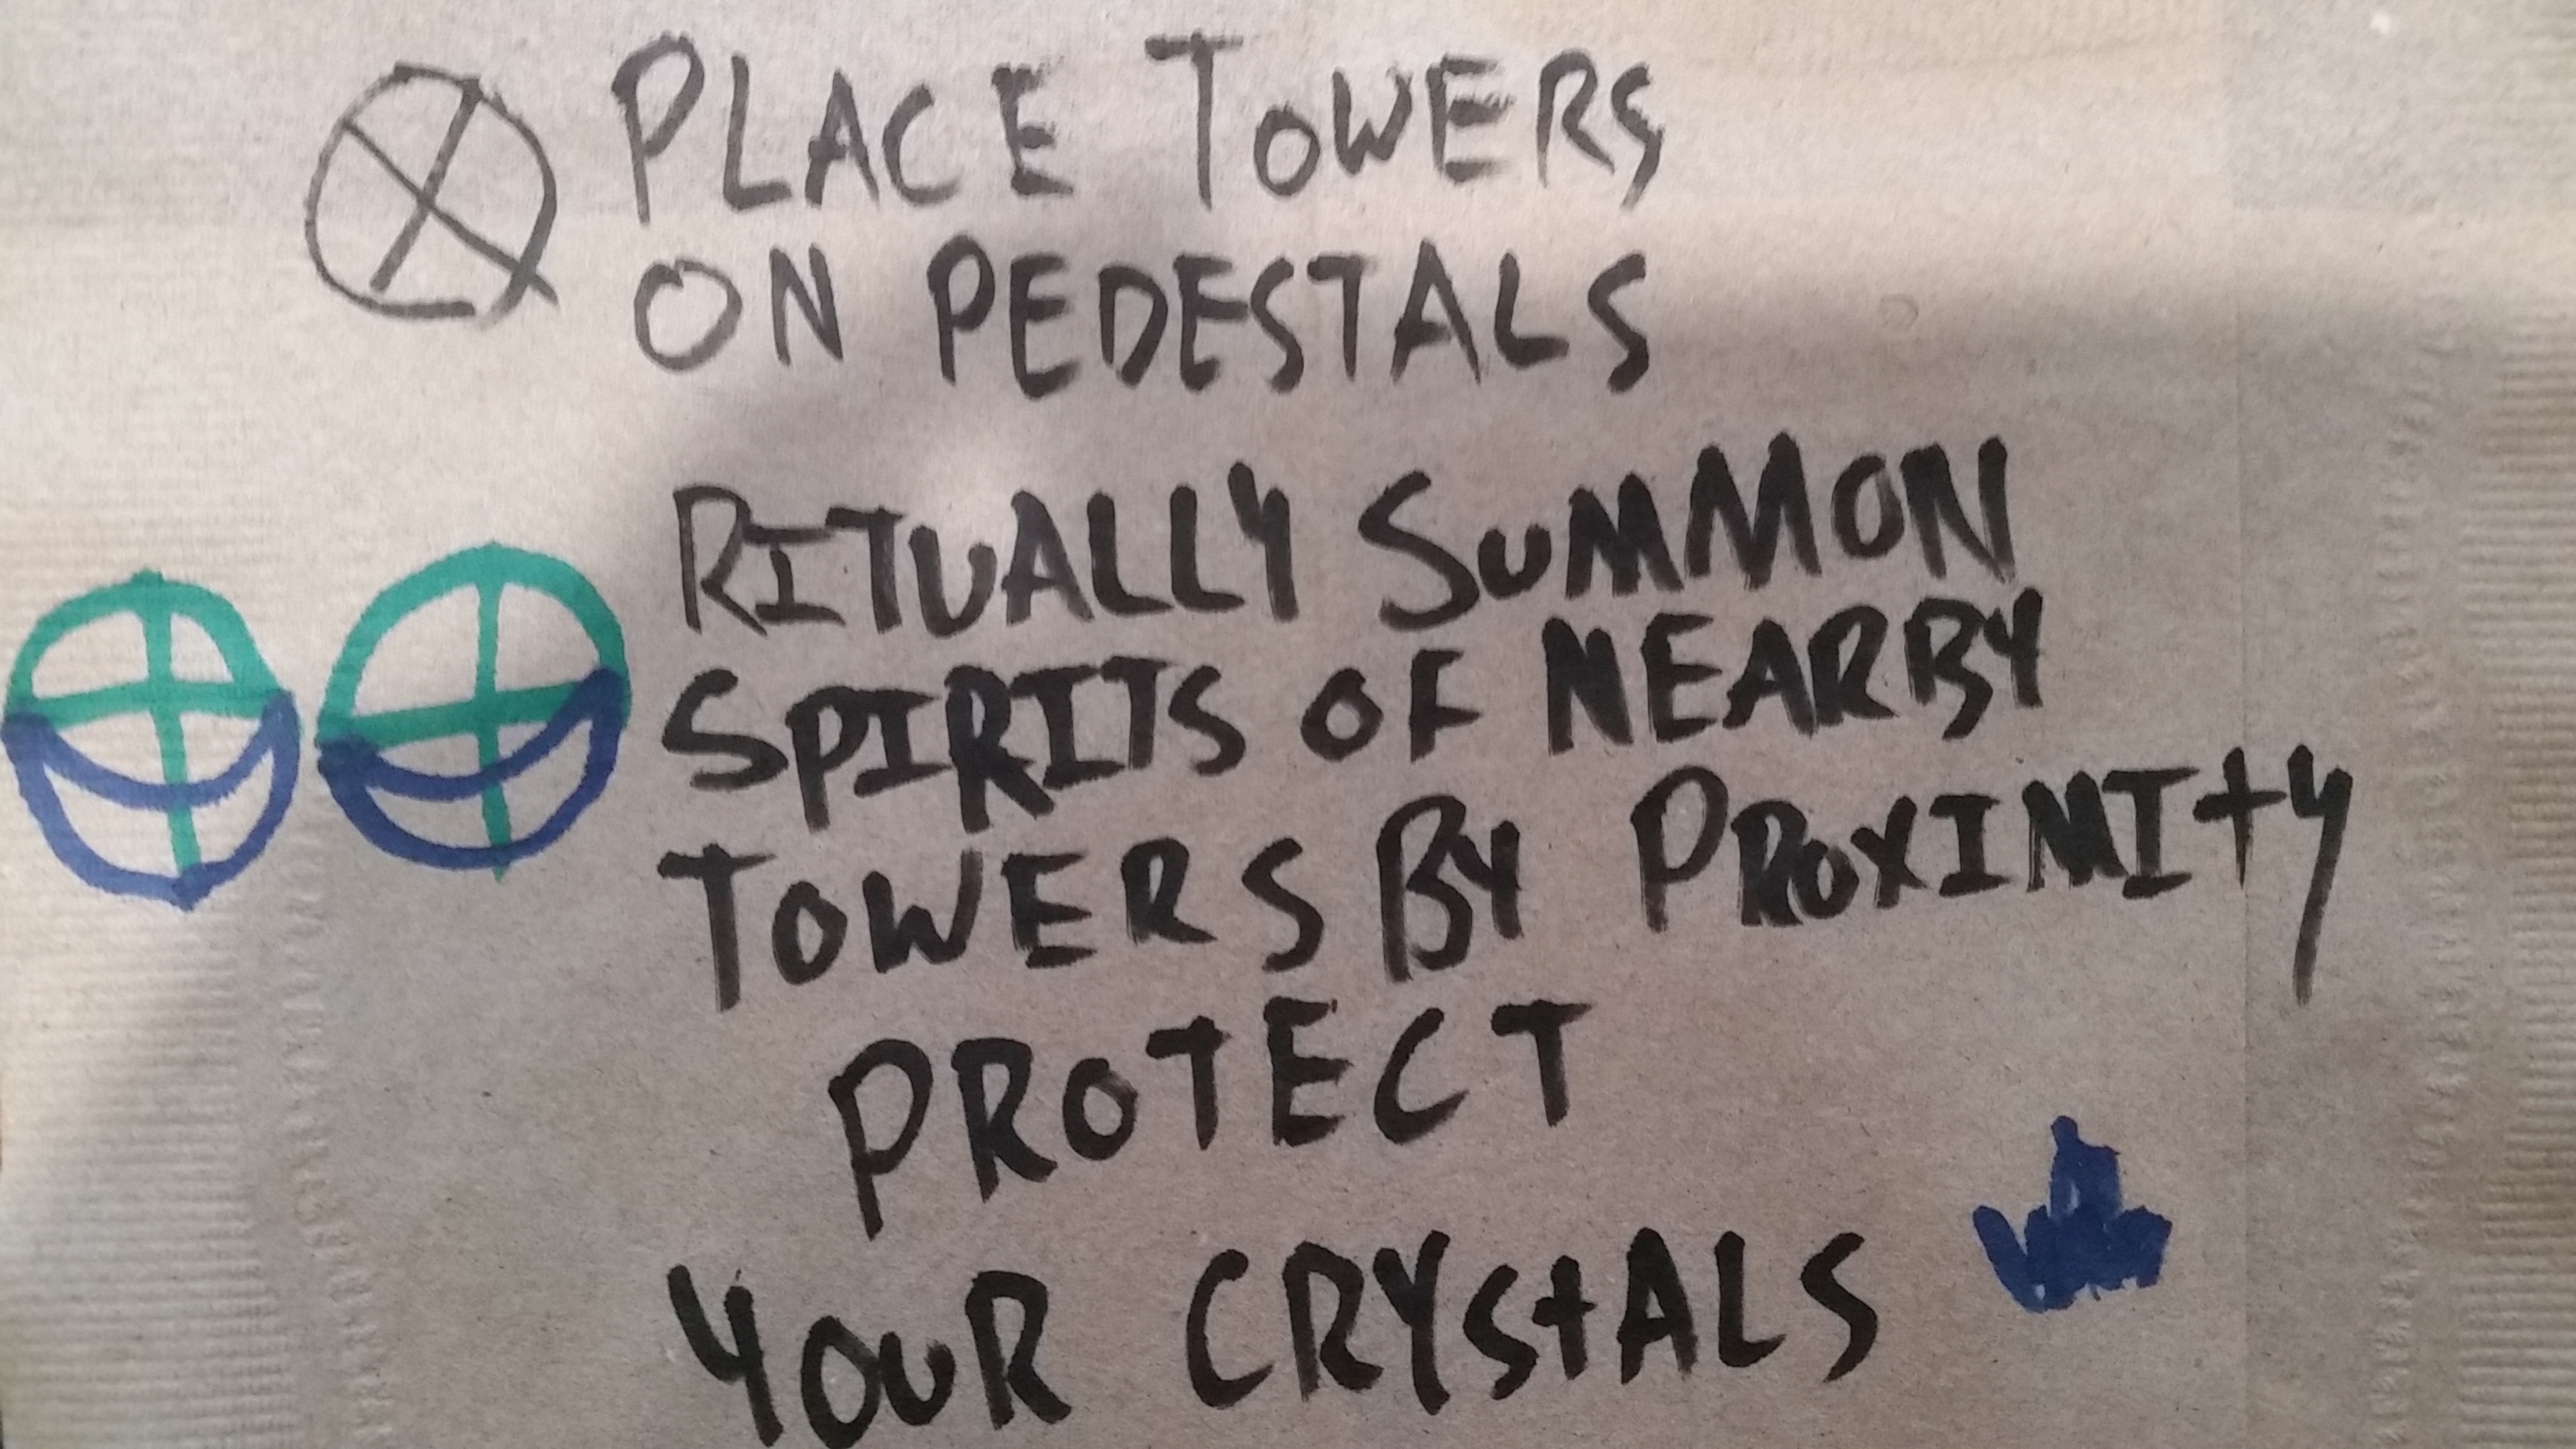 PLACE TOWERS
ON PEDESTALS
RITUALLY SUMMON
SPIRITS OF NEARBY
TOWERS BY PROXIMITY
PROTECT
YOUR CRYSTALS